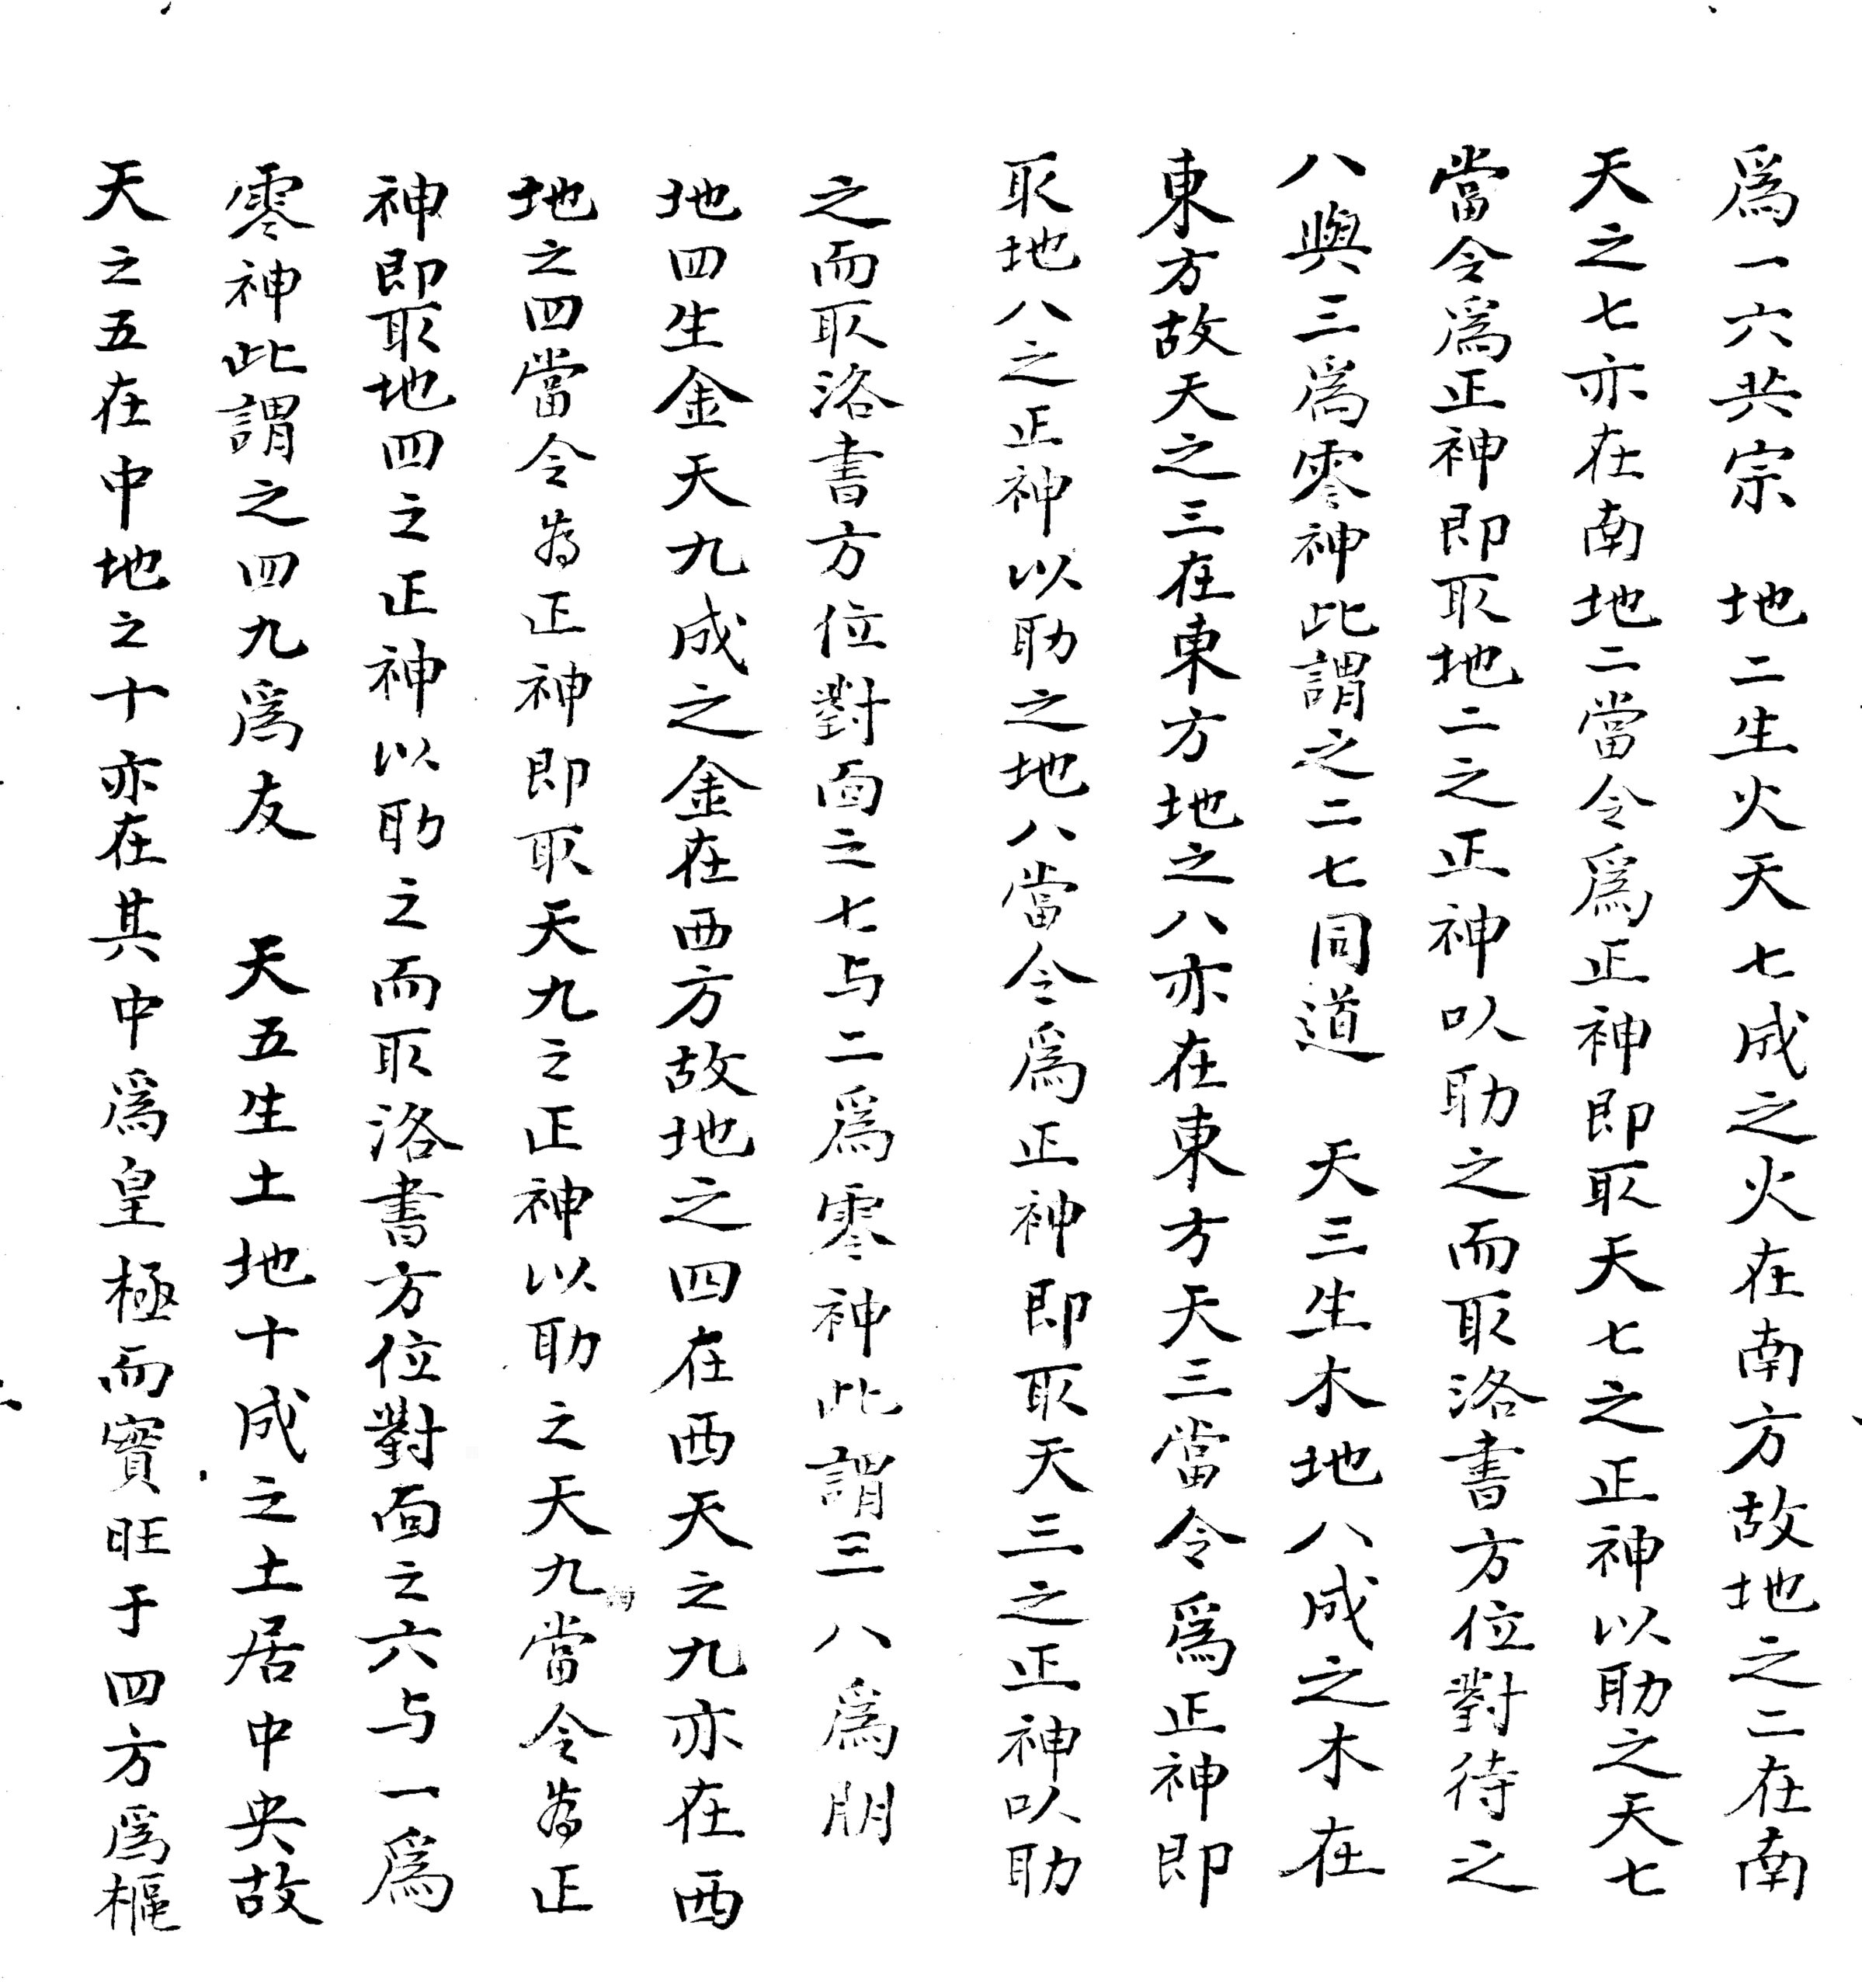 爲一六共宗　地二生火天七成之火在南方故地之二在南
天之七亦在南地二當令爲正神即取天七之正神以助之天七
當令爲正神即取地二之正神以助之而取洛書方位對待之
八與三爲零神此謂之二七同道　天三生木地八成之木在
東方故天之三在東方地之八亦在東方天三當令爲正神即
取地八之正神以助之地八當令爲正神即取天三之正神以助
之而取洛書方位對面之七与二爲零神此謂三八爲朋
地四生金天九成之金在西方故地之四在西天之九亦在西
地之四當令為正神即取天九之正神以助之天九當令為正
神即取地四之正神以助之而取洛書方位對面之六与一爲
零神此謂之四九爲友　天五生土地十成之土居中央故
天之五在中地之十亦在其中爲皇極而實旺于四方爲樞